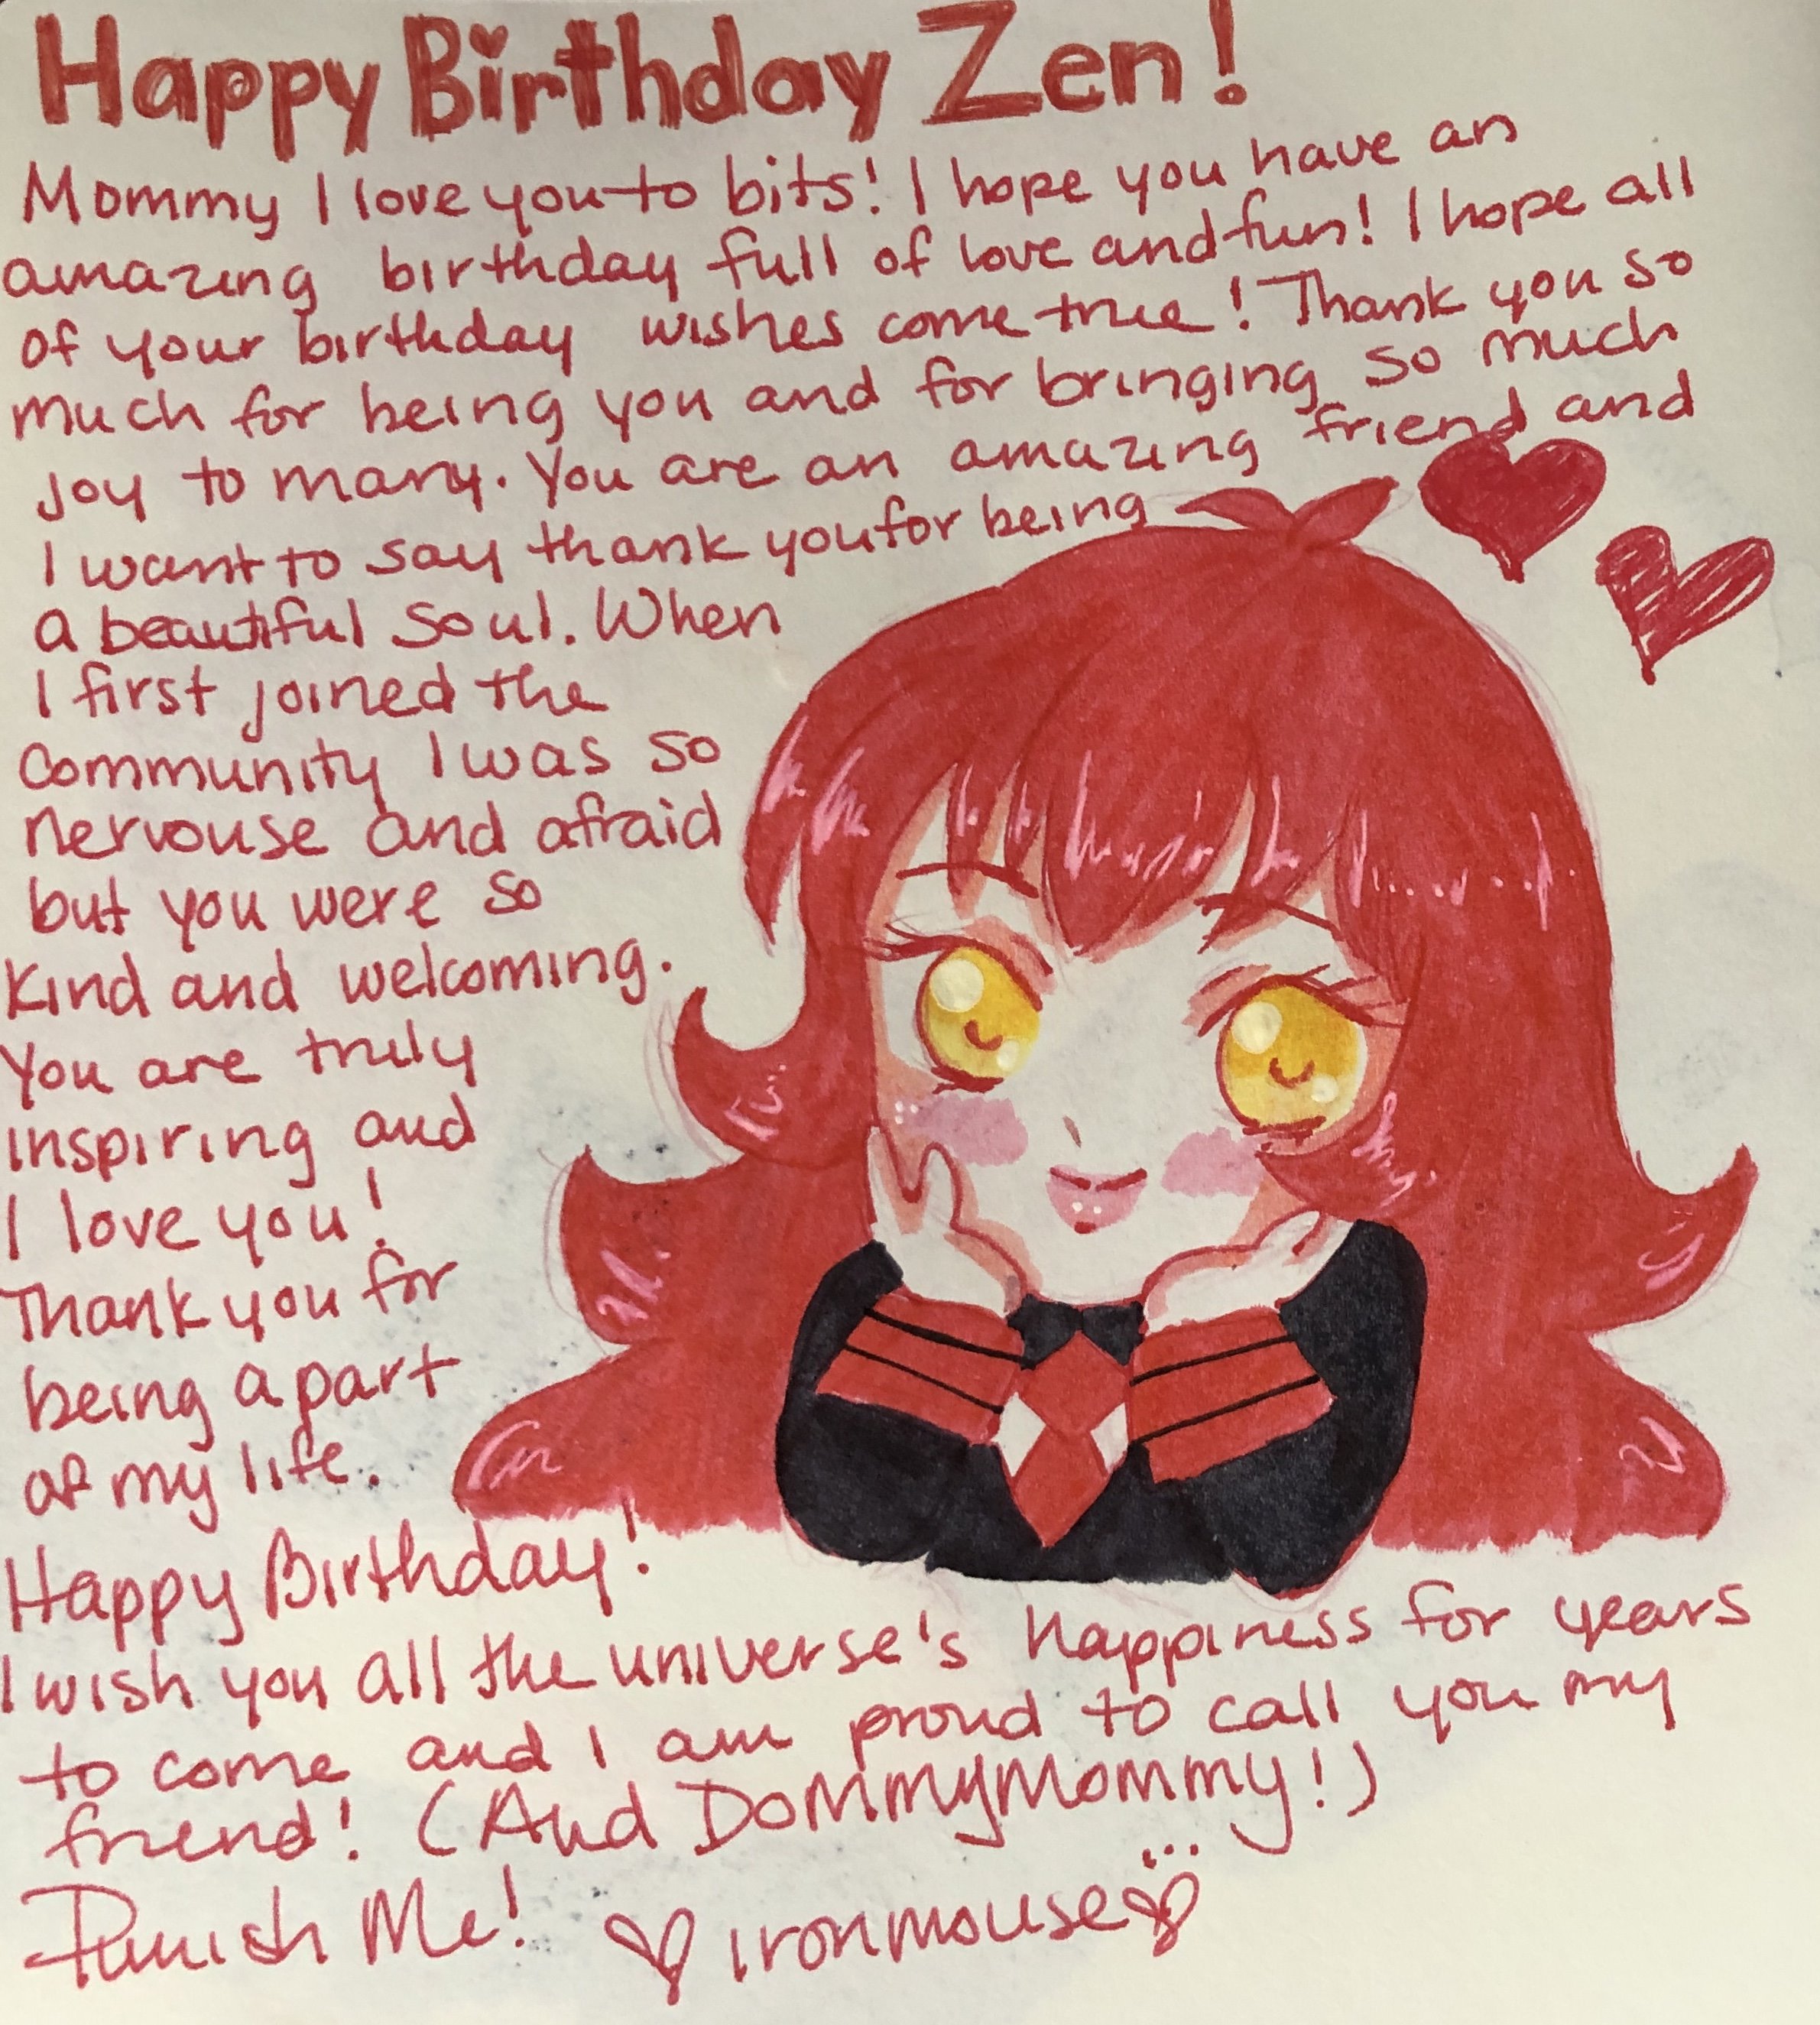 Happy Birthday Zen!
Mommy I love you to bits! I hope you have an
amazing birthday full of love and fun! I hope all
of your birthday wishes come true! Thank you so
much for being you and for bringing so much
joy to many. You are an amazing friend and
I want to say thank you for being
a beautiful soul. When
I first joined the
community I was so
nervouse and afraid
but you were so
kind and welcoming.
You are truly
inspiring and
I love you!
Thank you for
being a part
of my life.
Happy Birthday!
I wish you all the universe's happiness for years
to come and I am proud to call you my
friend! (And DommyMommy!)
Punish Me! ... ironmouse